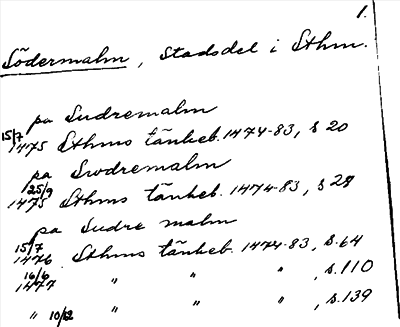 1.
Södermalm, stadsdel i Sthm.
pa Sudremalm
15/7 1475 Sthms tänkeb. 1474-83, s 20
pa Swdremalm
25/9 1475 Sthms tänkeb. 1474-83, s 28
pa Sudre malm
15/7 1476 Sthms tänkeb. 1474-83, s. 64
16/6 1477 " " " , s. 110
" 10/12 " " " , s. 139